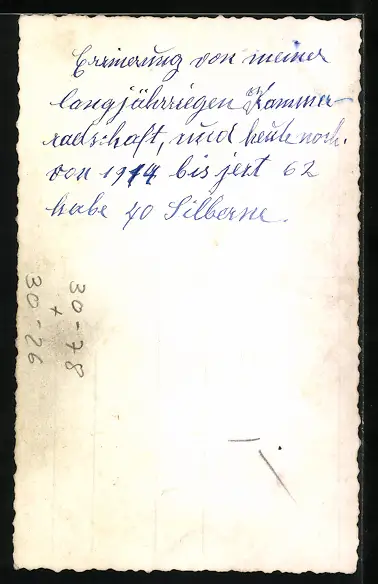 Errinerung von meiner
langjährriegen Kamme-
radschaft, und heute noch.
von 1914 bis jezt 62
habe 70 Silberne.
30-78
x
30-26